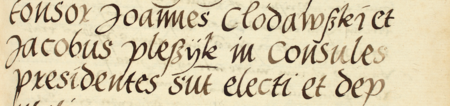 tonsor Joannes Clodawßki et
Jacobus pleßÿk in Consules
presidentes sūt electi et dep